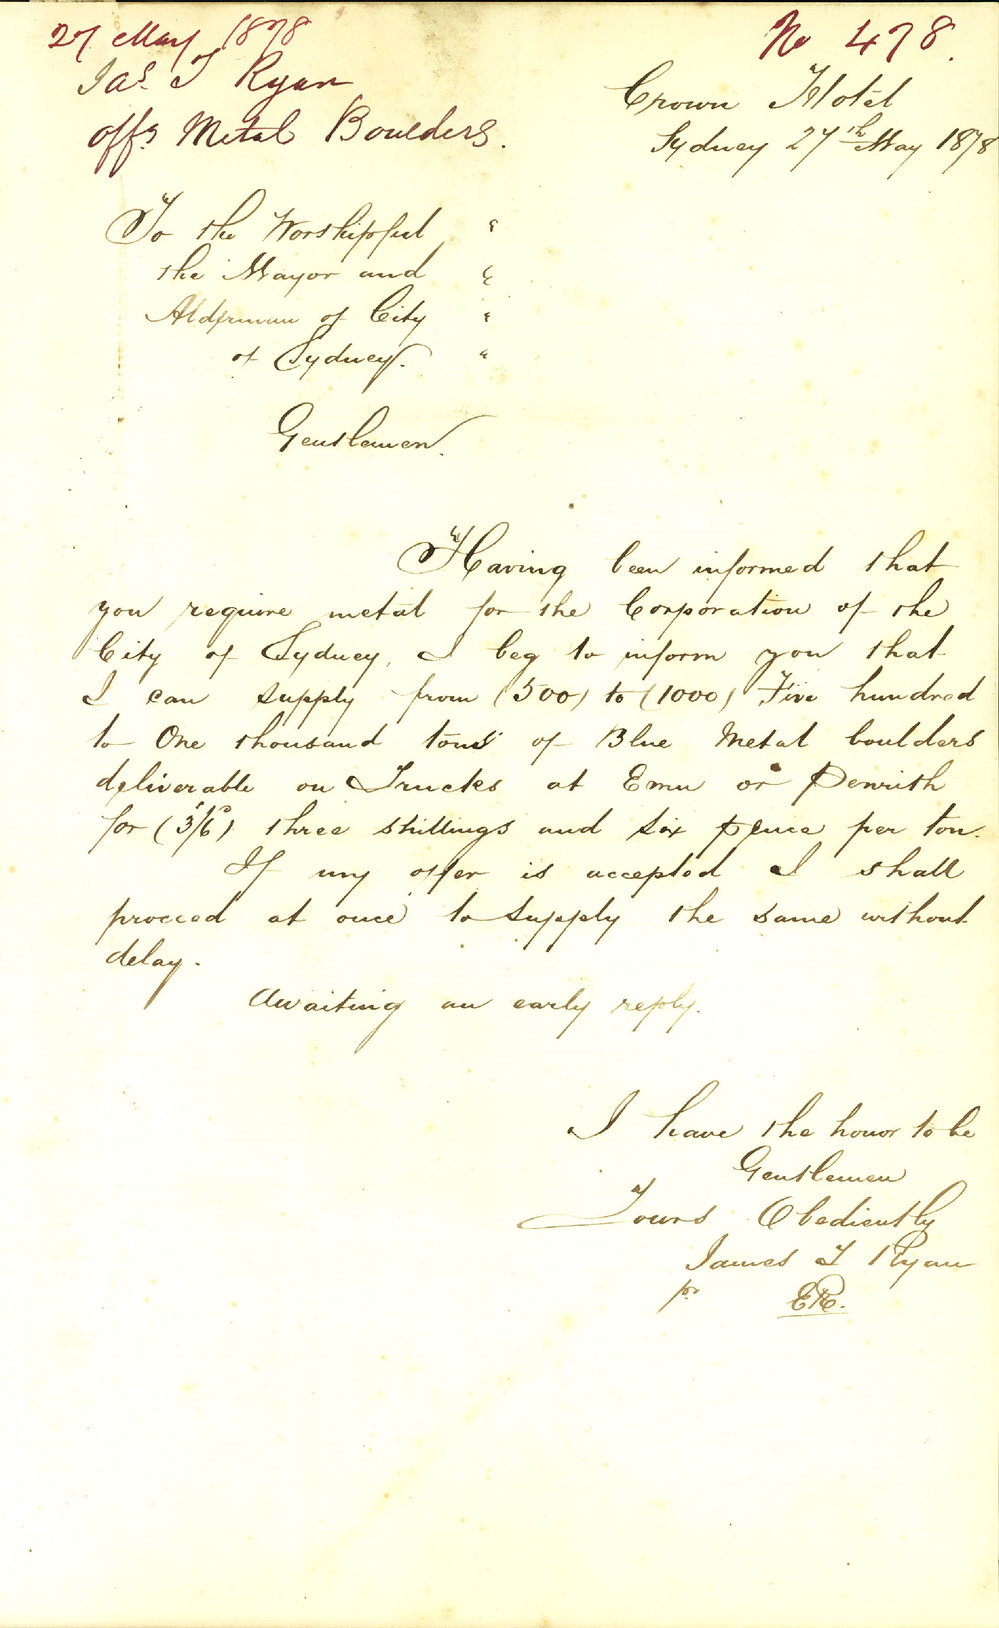 27 May 1878
Jas. T Ryan
offg Metal Boulders.
No 478.
Crown Hotel
Sydney 27th May 1878
To the Worshipful "
the Mayor and "
Alderman of City "
of Sydney. "
Gentlemen.
Having been informed that
you require metal for the Corporation of the
City of Sydney, I beg to inform you that
I can supply from (500) to (1000) Five hundred
to One thousand tons of Blue Metal boulders
deliverable on Trucks at Emu or Penrith
for (3/6) three shillings and six pence per ton.
If my offer is accepted I shall
proceed at once to supply the same without
delay.
Awaiting an early reply.
I have the honor to be
Gentlemen
Yours Obediently
James T Ryan
pr ER.